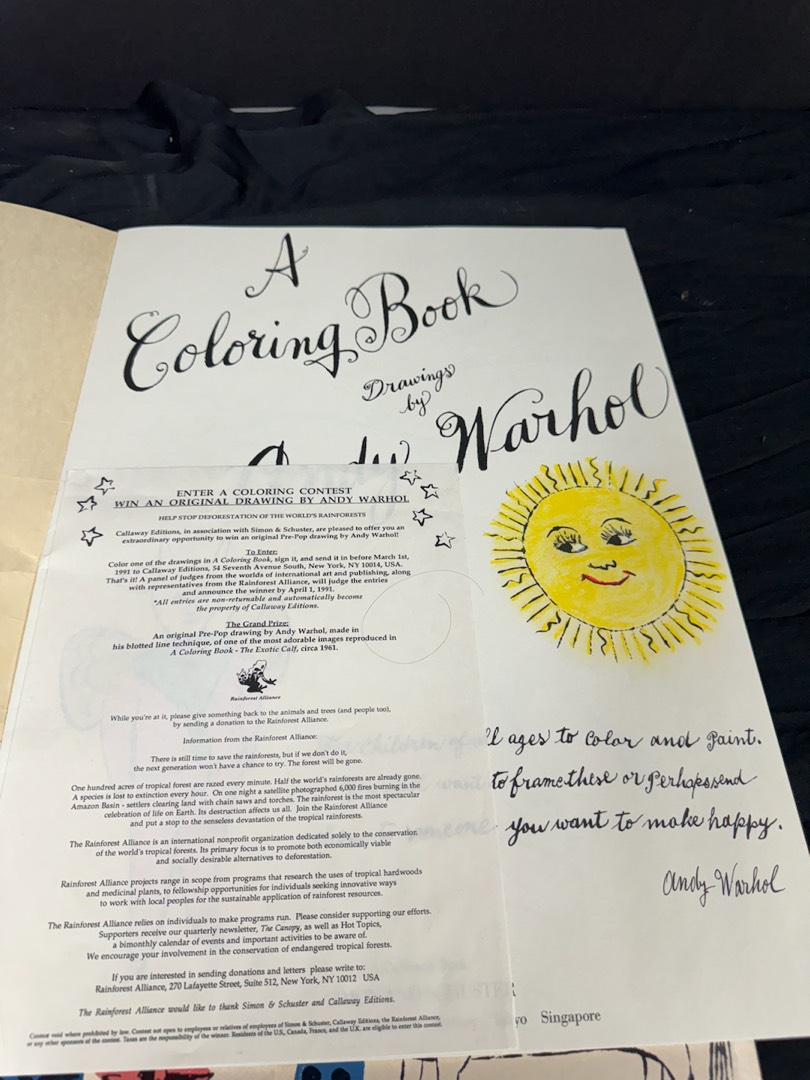 A
Coloring Book
Drawings
by
Andy Warhol
ENTER A COLORING CONTEST
WIN AN ORIGINAL DRAWING BY ANDY WARHOL
HELP STOP DEFORESTATION OF THE WORLD'S RAINFORESTS
Callaway Editions, in association with Simon & Schuster, are pleased to offer you an
extraordinary opportunity to win an original Pre-Pop drawing by Andy Warhol!
To Enter:
Color one of the drawings in A Coloring Book, sign it, and send it in before March 1st,
1991 to Callaway Editions, 54 Seventh Avenue South, New York, NY 10014, USA.
That's it! A panel of judges from the worlds of international art and publishing, along
with representatives from the Rainforest Alliance, will judge the entries
and announce the winner by April 1, 1991.
*All entries are non-returnable and automatically become
the property of Callaway Editions.
The Grand Prize:
An original Pre-Pop drawing by Andy Warhol, made in
his blotted line technique, of one of the most adorable images reproduced in
A Coloring Book - The Exotic Calf, circa 1961.
Rainforest Alliance
While you're at it, please give something back to the animals and trees (and people too),
by sending a donation to the Rainforest Alliance.
Information from the Rainforest Alliance:
There is still time to save the rainforests, but if we don't do it,
the next generation won't have a chance to try. The forest will be gone.
One hundred acres of tropical forest are razed every minute. Half the world's rainforests are already gone.
A species is lost to extinction every hour. On one night a satellite photographed 6,000 fires burning in the
Amazon Basin - settlers clearing land with chain saws and torches. The rainforest is the most spectacular
celebration of life on Earth. Its destruction affects us all. Join the Rainforest Alliance
and put a stop to the senseless devastation of the tropical rainforests.
The Rainforest Alliance is an international nonprofit organization dedicated solely to the conservation
of the world's tropical forests. Its primary focus is to promote both economically viable
and socially desirable alternatives to deforestation.
Rainforest Alliance projects range in scope from programs that research the uses of tropical hardwoods
and medicinal plants, to fellowship opportunities for individuals seeking innovative ways
to work with local peoples for the sustainable application of rainforest resources.
The Rainforest Alliance relies on individuals to make programs run. Please consider supporting our efforts.
Supporters receive our quarterly newsletter, The Canopy, as well as Hot Topics,
a bimonthly calendar of events and important activities to be aware of.
We encourage your involvement in the conservation of endangered tropical forests.
If you are interested in sending donations and letters please write to:
Rainforest Alliance, 270 Lafayette Street, Suite 512, New York, NY 10012 USA
The Rainforest Alliance would like to thank Simon & Schuster and Callaway Editions.
Contest void where prohibited by law. Contest not open to employees or relatives of employees of Simon & Schuster, Callaway Editions, the Rainforest Alliance,
or any other sponsors of the contest. Taxes are the responsibility of the winner. Residents of the U.S., Canada, France, and the U.K. are eligible to enter this contest.
ll ages to color and paint.
to frame these or perhaps send
you want to make happy.
Andy Warhol
yo Singapore